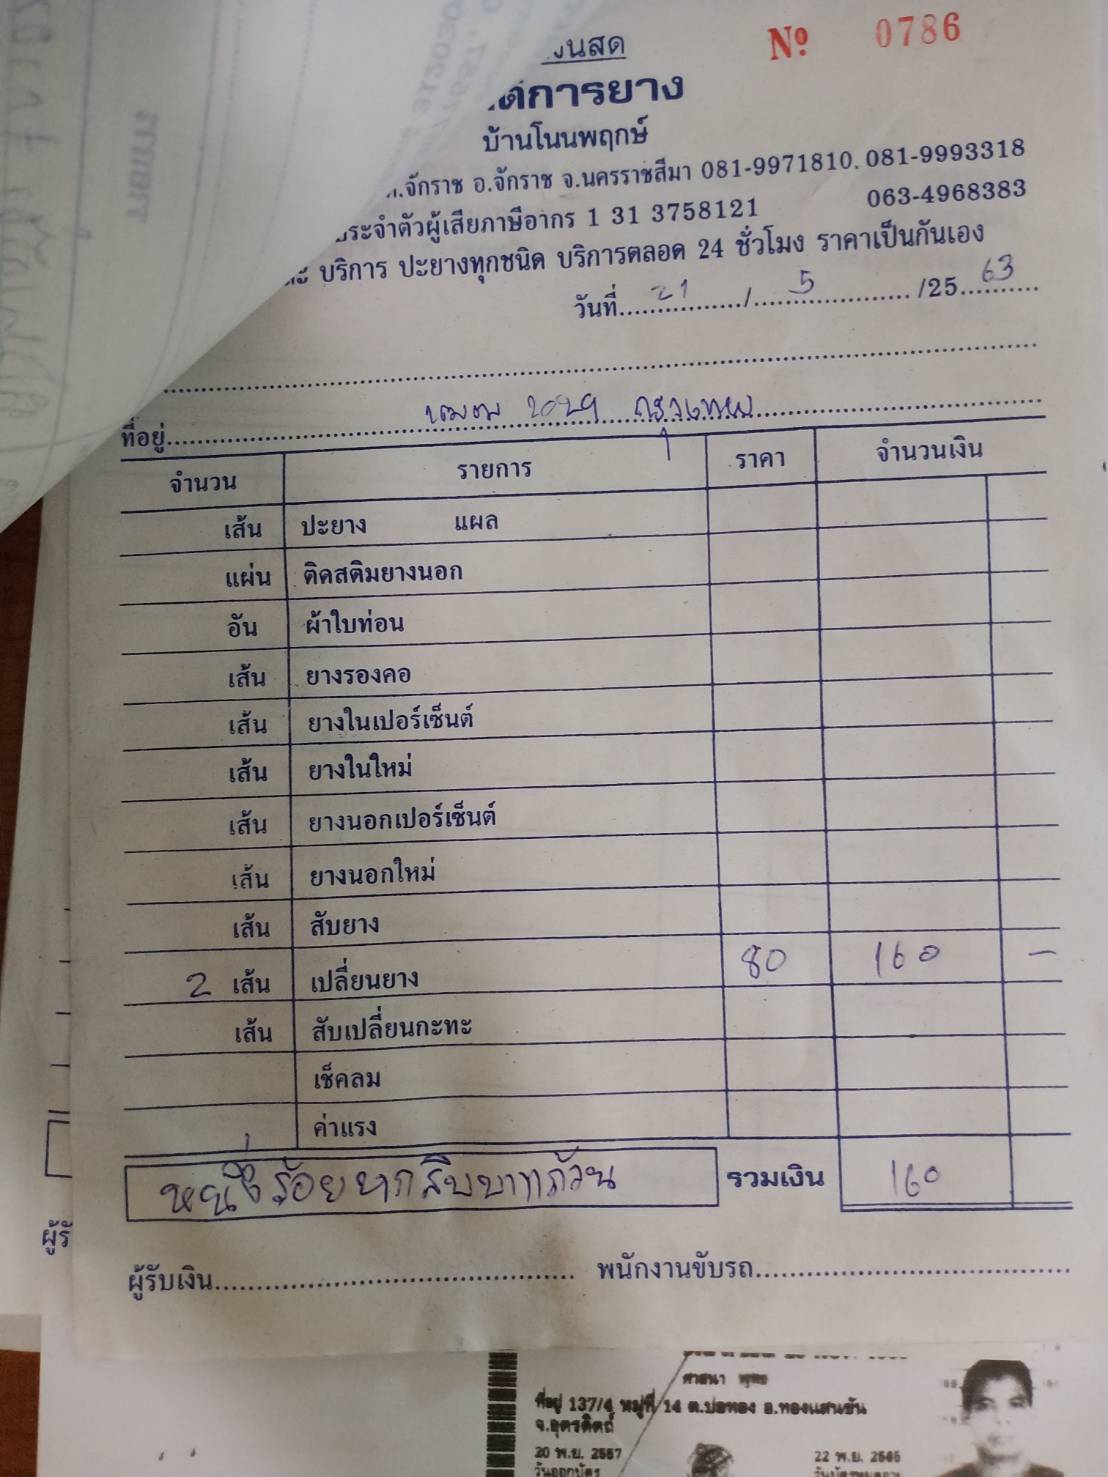 นสด
№ 0786
การยาง
บ้านโนนพฤกษ์
.จักราช อ.จักราช จ.นครราชสีมา 081-9971810, 081-9993318
063-4968383
ประจำตัวผู้เสียภาษีอากร 1 31 3758121
บริการ ปะยางทุกชนิด บริการตลอด 24 ชั่วโมง ราคาเป็นกันเอง
วันที่ 21 / 5 /25 63
ที่อยู่
จำนวน รายการ ราคา จำนวนเงิน
เส้น ปะยาง แผล
แผ่น ติดสติมยางนอก
อัน ผ้าใบท่อน
เส้น ยางรองคอ
เส้น ยางในเปอร์เซ็นต์
เส้น ยางในใหม่
เส้น ยางนอกเปอร์เซ็นต์
เส้น ยางนอกใหม่
เส้น สับยาง
2 เส้น เปลี่ยนยาง 80 160 -
เส้น สับเปลี่ยนกะทะ
เช็คลม
ค่าแรง
หนึ่งร้อยหกสิบบาทถ้วน รวมเงิน 160
ผู้รับเงิน พนักงานขับรถ
ผู้รั
ศาสนา พุทธ
ที่อยู่ 137/4 หมู่ที่ 14 ต.บ่อทอง อ.ทองแสนขัน
จ.อุตรดิตถ์
20 พ.ย. 2557 22 พ.ย. 2565
วันออกบัตร